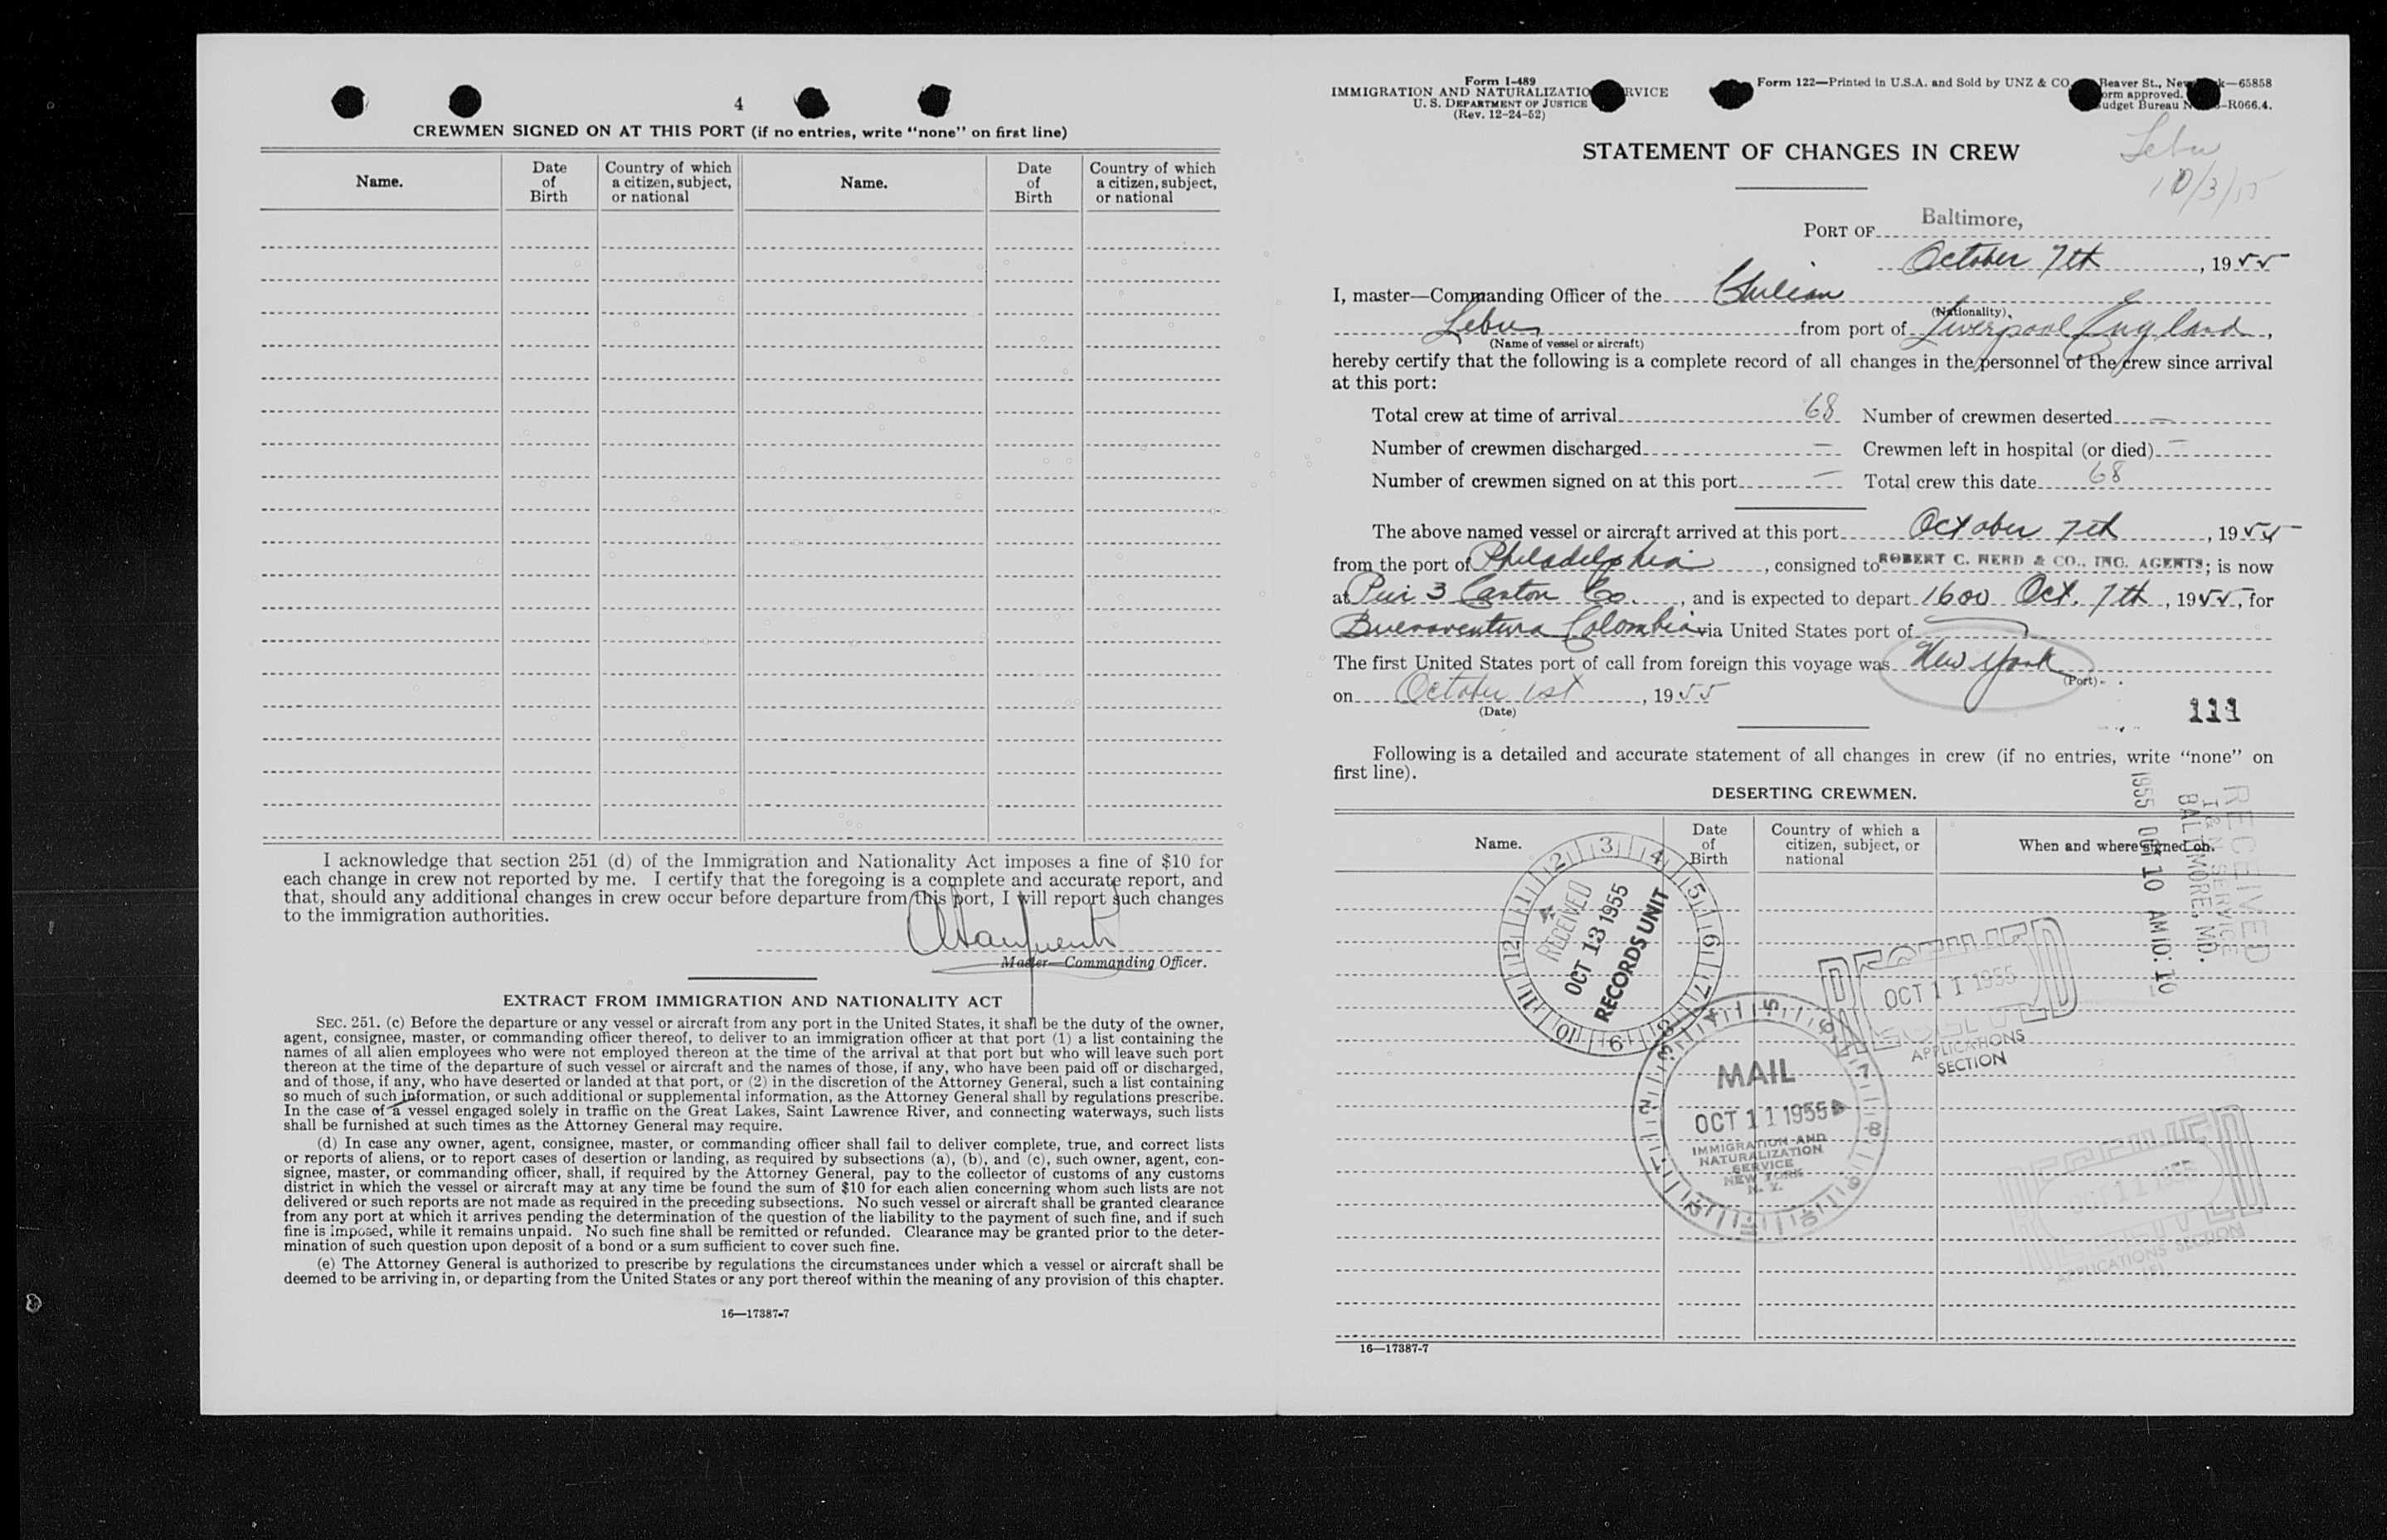 4
CREWMEN SIGNED ON AT THIS PORT (if no entries, write “none” on first line)
Name.
Date of Birth
Country of which a citizen, subject, or national
Name.
Date of Birth
Country of which a citizen, subject, or national
I acknowledge that section 251 (d) of the Immigration and Nationality Act imposes a fine of $10 for
each change in crew not reported by me. I certify that the foregoing is a complete and accurate report, and
that, should any additional changes in crew occur before departure from this port, I will report such changes
to the immigration authorities.
Master—Commanding Officer.
EXTRACT FROM IMMIGRATION AND NATIONALITY ACT
SEC. 251. (c) Before the departure or any vessel or aircraft from any port in the United States, it shall be the duty of the owner,
agent, consignee, master, or commanding officer thereof, to deliver to an immigration officer at that port (1) a list containing the
names of all alien employees who were not employed thereon at the time of the arrival at that port but who will leave such port
thereon at the time of the departure of such vessel or aircraft and the names of those, if any, who have been paid off or discharged,
and of those, if any, who have deserted or landed at that port, or (2) in the discretion of the Attorney General, such a list containing
so much of such information, or such additional or supplemental information, as the Attorney General shall by regulations prescribe.
In the case of a vessel engaged solely in traffic on the Great Lakes, Saint Lawrence River, and connecting waterways, such lists
shall be furnished at such times as the Attorney General may require.
(d) In case any owner, agent, consignee, master, or commanding officer shall fail to deliver complete, true, and correct lists
or reports of aliens, or to report cases of desertion or landing, as required by subsections (a), (b), and (c), such owner, agent, con-
signee, master, or commanding officer, shall, if required by the Attorney General, pay to the collector of customs of any customs
district in which the vessel or aircraft may at any time be found the sum of $10 for each alien concerning whom such lists are not
delivered or such reports are not made as required in the preceding subsections. No such vessel or aircraft shall be granted clearance
from any port at which it arrives pending the determination of the question of the liability to the payment of such fine, and if such
fine is imposed, while it remains unpaid. No such fine shall be remitted or refunded. Clearance may be granted prior to the deter-
mination of such question upon deposit of a bond or a sum sufficient to cover such fine.
(e) The Attorney General is authorized to prescribe by regulations the circumstances under which a vessel or aircraft shall be
deemed to be arriving in, or departing from the United States or any port thereof within the meaning of any provision of this chapter.
16—17387-7
Form I-489
IMMIGRATION AND NATURALIZATIO RVICE
U. S. DEPARTMENT OF JUSTICE
(Rev. 12-24-52)
Form 122—Printed in U.S.A. and Sold by UNZ & CO. Beaver St., New k—65858
orm approved.
udget Bureau N -R066.4.
Lebu
10/3/55
STATEMENT OF CHANGES IN CREW
PORT OF Baltimore,
October 7th, 1955
I, master—Commanding Officer of the Chilean
(Nationality)
Lebu from port of Liverpool England,
(Name of vessel or aircraft)
hereby certify that the following is a complete record of all changes in the personnel of the crew since arrival
at this port:
Total crew at time of arrival 68 Number of crewmen deserted —
Number of crewmen discharged — Crewmen left in hospital (or died) —
Number of crewmen signed on at this port — Total crew this date 68
The above named vessel or aircraft arrived at this port October 7th, 1955
from the port of Philadelphia, consigned to ROBERT C. HERD & CO., INC. AGENTS; is now
at Pier 3 Canton Co., and is expected to depart 1600 Oct. 7th, 1955, for
Buenaventura Colombia via United States port of —
The first United States port of call from foreign this voyage was New York
(Port)
on October 1st, 1955
(Date)
111
Following is a detailed and accurate statement of all changes in crew (if no entries, write “none” on
first line).
DESERTING CREWMEN.
Name.
Date of Birth
Country of which a citizen, subject, or national
When and where signed on.
RECEIVED
I & N SERVICE
BALTIMORE, MD.
1955 OCT 10 AM 10: 10
RECEIVED
OCT 13 1955
RECORDS UNIT
1 2 3 4 5 6 7 8 9 10 11 12
RECEIVED
OCT 11 1955
APPLICATIONS
SECTION
MAIL
OCT 11 1955
IMMIGRATION AND
NATURALIZATION
SERVICE
NEW YORK
N. Y.
RECEIVED
OCT 11 1955
APPLICATIONS SECTION
16—17387-7